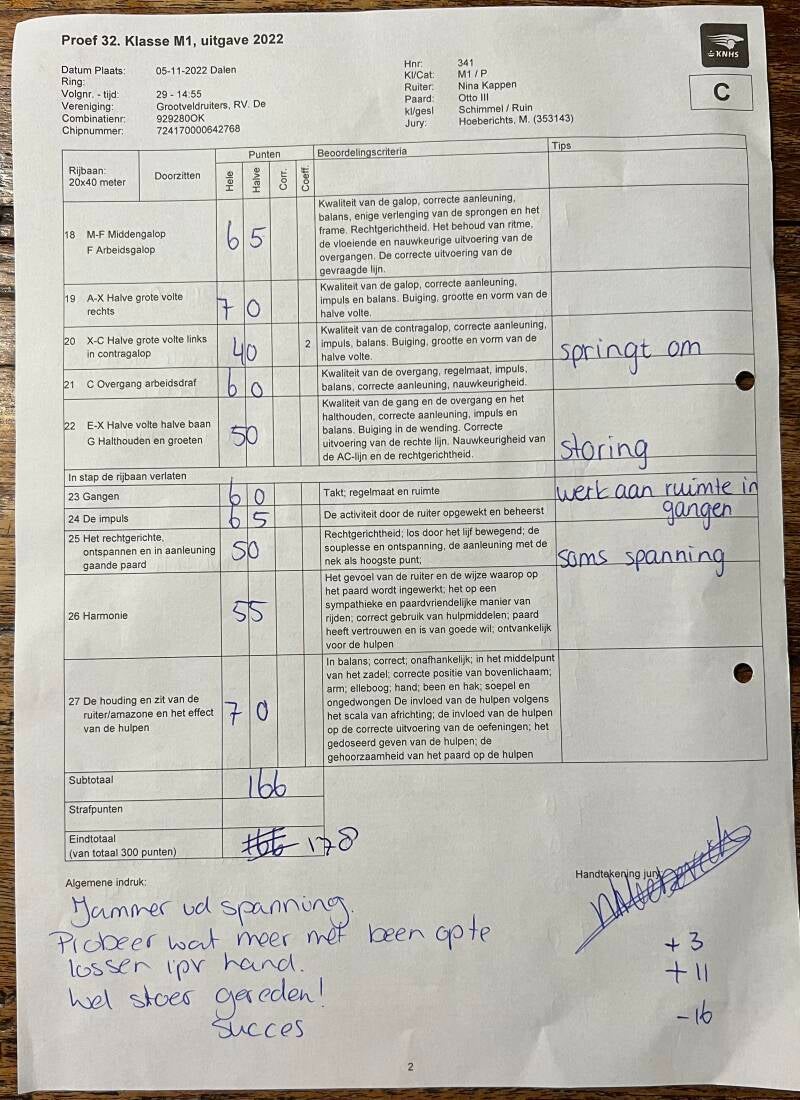 Proef 32. Klasse M1, uitgave 2022
KNHS
C
Datum Plaats: 05-11-2022 Dalen
Ring:
Volgnr. - tijd: 29 - 14:55
Vereniging: Grootveldruiters, RV. De
Combinatienr: 929280OK
Chipnummer: 724170000642768
Hnr: 341
Kl/Cat: M1 / P
Ruiter: Nina Kappen
Paard: Otto III
kl/gesl Schimmel / Ruin
Jury: Hoeberichts, M. (353143)
Rijbaan:
20x40 meter
Doorzitten
Punten
Hele
Halve
Corr.
Coeff.
Beoordelingscriteria
Tips
18 M-F Middengalop
F Arbeidsgalop
6 5
Kwaliteit van de galop, correcte aanleuning,
balans, enige verlenging van de sprongen en het
frame. Rechtgerichtheid. Het behoud van ritme,
de vloeiende en nauwkeurige uitvoering van de
overgangen. De correcte uitvoering van de
gevraagde lijn.
19 A-X Halve grote volte
rechts
7 0
Kwaliteit van de galop, correcte aanleuning,
impuls en balans. Buiging, grootte en vorm van de
halve volte.
20 X-C Halve grote volte links
in contragalop
40
2
Kwaliteit van de contragalop, correcte aanleuning,
impuls, balans. Buiging, grootte en vorm van de
halve volte.
springt om
21 C Overgang arbeidsdraf
6 0
Kwaliteit van de overgang, regelmaat, impuls,
balans, correcte aanleuning, nauwkeurigheid.
22 E-X Halve volte halve baan
G Halthouden en groeten
50
Kwaliteit van de gang en de overgang en het
halthouden, correcte aanleuning, impuls en
balans. Buiging in de wending. Correcte
uitvoering van de rechte lijn. Nauwkeurigheid van
de AC-lijn en de rechtgerichtheid.
storing
In stap de rijbaan verlaten
23 Gangen
6 0
Takt; regelmaat en ruimte
werk aan ruimte in
gangen
24 De impuls
6 5
De activiteit door de ruiter opgewekt en beheerst
25 Het rechtgerichte,
ontspannen en in aanleuning
gaande paard
50
Rechtgerichtheid; los door het lijf bewegend; de
souplesse en ontspanning, de aanleuning met de
nek als hoogste punt;
soms spanning
26 Harmonie
55
Het gevoel van de ruiter en de wijze waarop op
het paard wordt ingewerkt; het op een
sympathieke en paardvriendelijke manier van
rijden; correct gebruik van hulpmiddelen; paard
heeft vertrouwen en is van goede wil; ontvankelijk
voor de hulpen
27 De houding en zit van de
ruiter/amazone en het effect
van de hulpen
7 0
In balans; correct; onafhankelijk; in het middelpunt
van het zadel; correcte positie van bovenlichaam;
arm; elleboog; hand; been en hak; soepel en
ongedwongen De invloed van de hulpen volgens
het scala van africhting; de invloed van de hulpen
op de correcte uitvoering van de oefeningen; het
gedoseerd geven van de hulpen; de
gehoorzaamheid van het paard op de hulpen
Subtotaal 166
Strafpunten
Eindtotaal
(van totaal 300 punten)
166 178
Algemene indruk:
Handtekening jury
Jammer vd spanning.
Probeer wat meer met been op te
lossen ipv hand.
Wel stoer gereden!
Succes
+3
+11
-16
2